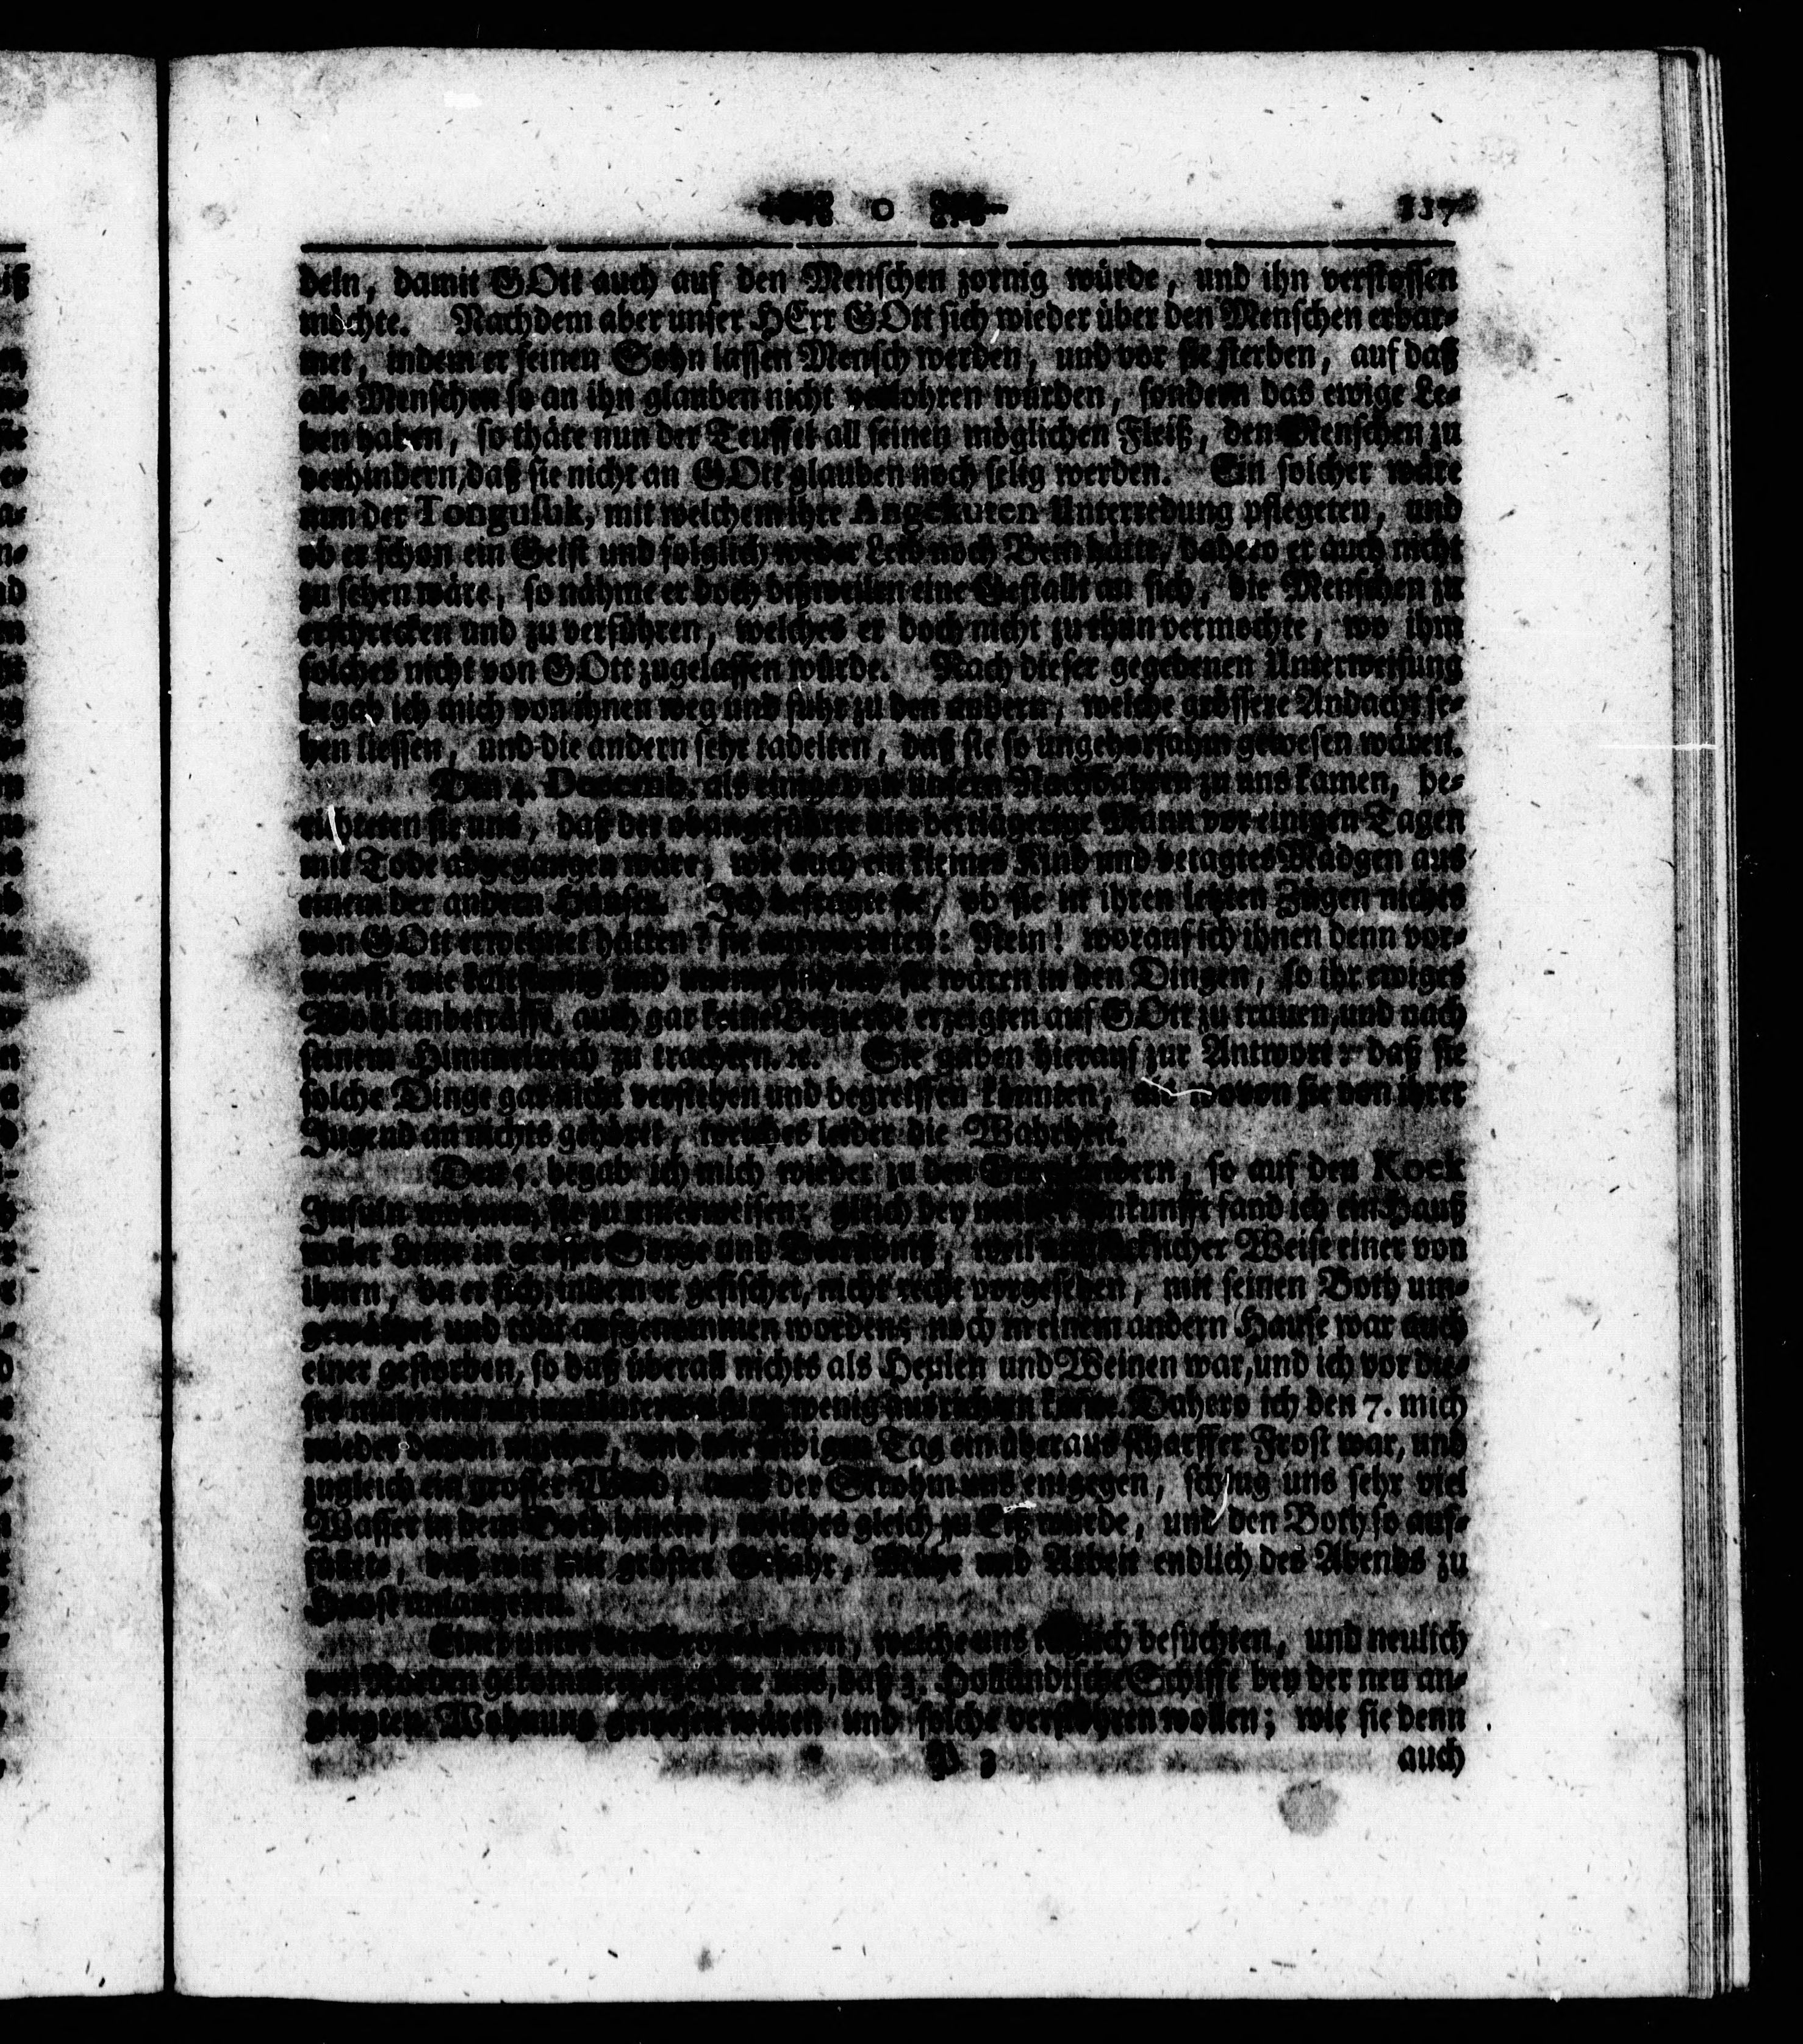 o 117
deln, damit GOtt auch auf den Menschen zornig würde, und ihn verstossen
möchte. Nachdem aber unser HErr GOtt sich wieder über den Menschen erbar-
met, indem er seinen Sohn lassen Mensch werden, und vor sie sterben, auf daß
alle Menschen so an ihn glauben nicht verlohren würden, sondern das ewige Le-
ben haben, so thäte nun der Teuffel all seinen möglichen Fleiß, den Menschen zu
verhindern, daß sie nicht an GOtt glauben noch selig werden. Ein solcher wäre
nun der mit welchem ihre Angekuten Unterredung pflegeten, und
ob er schon ein Geist und folglich weder Leib noch Bein hätte, dahero er auch nicht
zu sehen wäre, so nähme er doch bißweilen eine Gestallt an sich, die Menschen zu
erschrecken und zu verführen, welches er doch nicht zu thun vermochte, wo ihm
solches nicht von GOtt zugelassen würde. Nach dieser gegebenen Unterweisung
begab ich mich von ihnen weg und fuhr zu den andern, welche grössere Andacht se-
hen liessen, und die andern sehr tadelten, daß sie so ungehorsahm gewesen wären.
Den 4. Decemb. als einige von unsern Nachbahren zu uns kamen, be-
richteten sie uns, daß der obangeführte alte bettlägerige Mann vor einigen Tagen
mit Tode abgegangen wäre, wie auch ein kleines Kind und betagtes Mädgen aus
einem der andern Häuser. Ich befragte sie, ob sie in ihren letzten Zügen nichts
von GOtt erwehnet hätten? sie antworteten: Nein! worauf ich ihnen denn vor-
warff, wie kaltsinnig und unempfindlich sie wären in den Dingen, so ihr ewiges
Wohl anbeträfft, auch gar keine Begierde erzeigten auf GOtt zu trauen, und nach
seinem Himmelreich zu trachten. ꝛc. Sie gaben hierauf zur Antwort: daß sie
solche Dinge gar nicht verstehen und begreiffen könnten, wovon sie von ihrer
Jugend an nichts gehört, welches leider die Wahrheit.
Den 5. begab ich mich wieder zu den Grönländern, so auf den Kock
Insuln wohnen, sie zu unterweisen; gleich bey meiner Ankunfft fand ich ein Hauß
voller Leute in grosser Sorge und Betrübniß, weil unglücklicher Weise einer von
ihnen, da er sich, indem er gefischet, nicht recht vorgesehen, mit seinen Both um-
geweltzet und todt aufgenommen worden; noch in einem andern Hause war auch
einer gestorben, so daß überall nichts als Heulen und Weinen war, und ich vor die-
ses mahl mit meiner Unterweisung wenig ausrichten konte. Dahero ich den 7. mich
wieder davon machte, und wie selbigen Tag ein überaus scharffer Frost war, und
zugleich ein grosser Wind, auch der Strohm uns entgegen, schlug uns sehr viel
Wasser in dem Both hinein, welches gleich zu Eiß wurde, und den Both so auf-
füllete, daß wir mit gröster Gefahr, Mühe und Arbeit endlich des Abends zu
Hause anlangeten.
Einer unter den Grönländern, welche uns täglich besuchten, und neulich
von Norden gekommen, erzehlte uns, daß 3. Holländische Schiffe bey der neu an-
gelegten Wohnung gewesen wären und solche verstöhren wollen; wie sie denn
P 3 auch